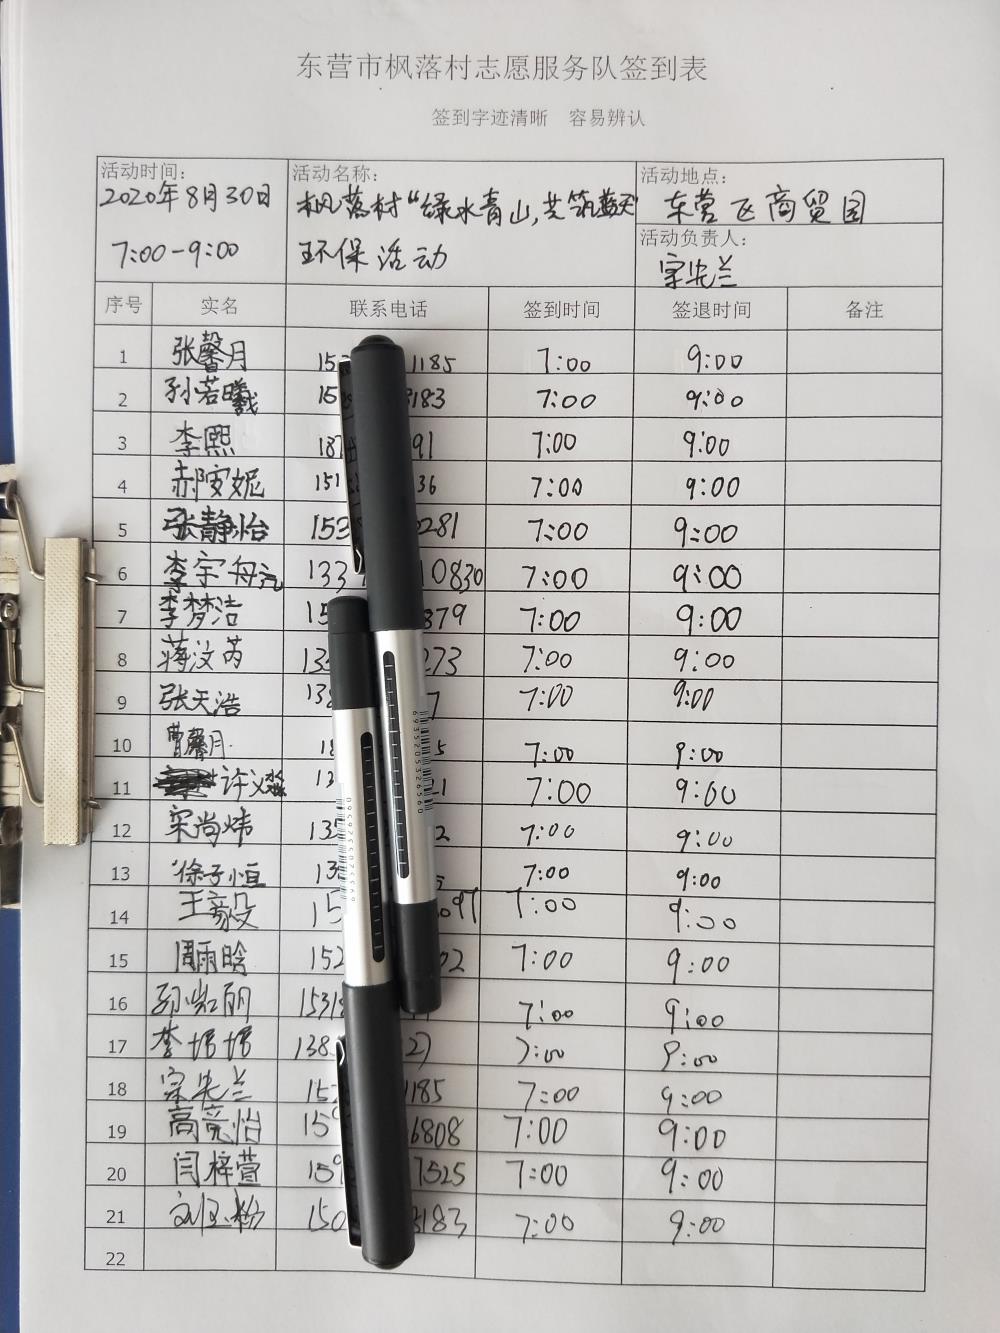 东营市枫落村志愿服务队签到表
签到字迹清晰 容易辨认
活动时间: 2020年8月30日 7:00-9:00
活动名称: 枫落村“绿水青山,共筑蓝天 环保活动
活动地点: 东营飞商贸园
活动负责人: 宗先兰
序号 实名 联系电话 签到时间 签退时间 备注
1 张馨月 15 1185 7:00 9:00
2 孙若曦 15 183 7:00 9:00
3 李熙 187 91 7:00 9:00
4 郝安妮 151 36 7:00 9:00
5 张静怡 153 281 7:00 9:00
6 李宇舟 133 10830 7:00 9:00
7 李梦洁 15 879 7:00 9:00
8 蒋汶芮 13 273 7:00 9:00
9 张天浩 138 7 7:00 9:00
10 曹馨月 18 5 7:00 9:00
11 许义 7:00 9:00
12 宋尚炜 135 2 7:00 9:00
13 徐子恒 13 7:00 9:00
14 王毅 15 97 7:00 9:00
15 周雨晗 152 02 7:00 9:00
16 孙 丽 1531 7:00 9:00
17 李 138 7:00 9:00
18 宗先兰 15 1185 7:00 9:00
19 高亮怡 15 6808 7:00 9:00
20 闫梓萱 159 7525 7:00 9:00
21 刘玉粉 150 3183 7:00 9:00
22
6935205326560
6935205326560